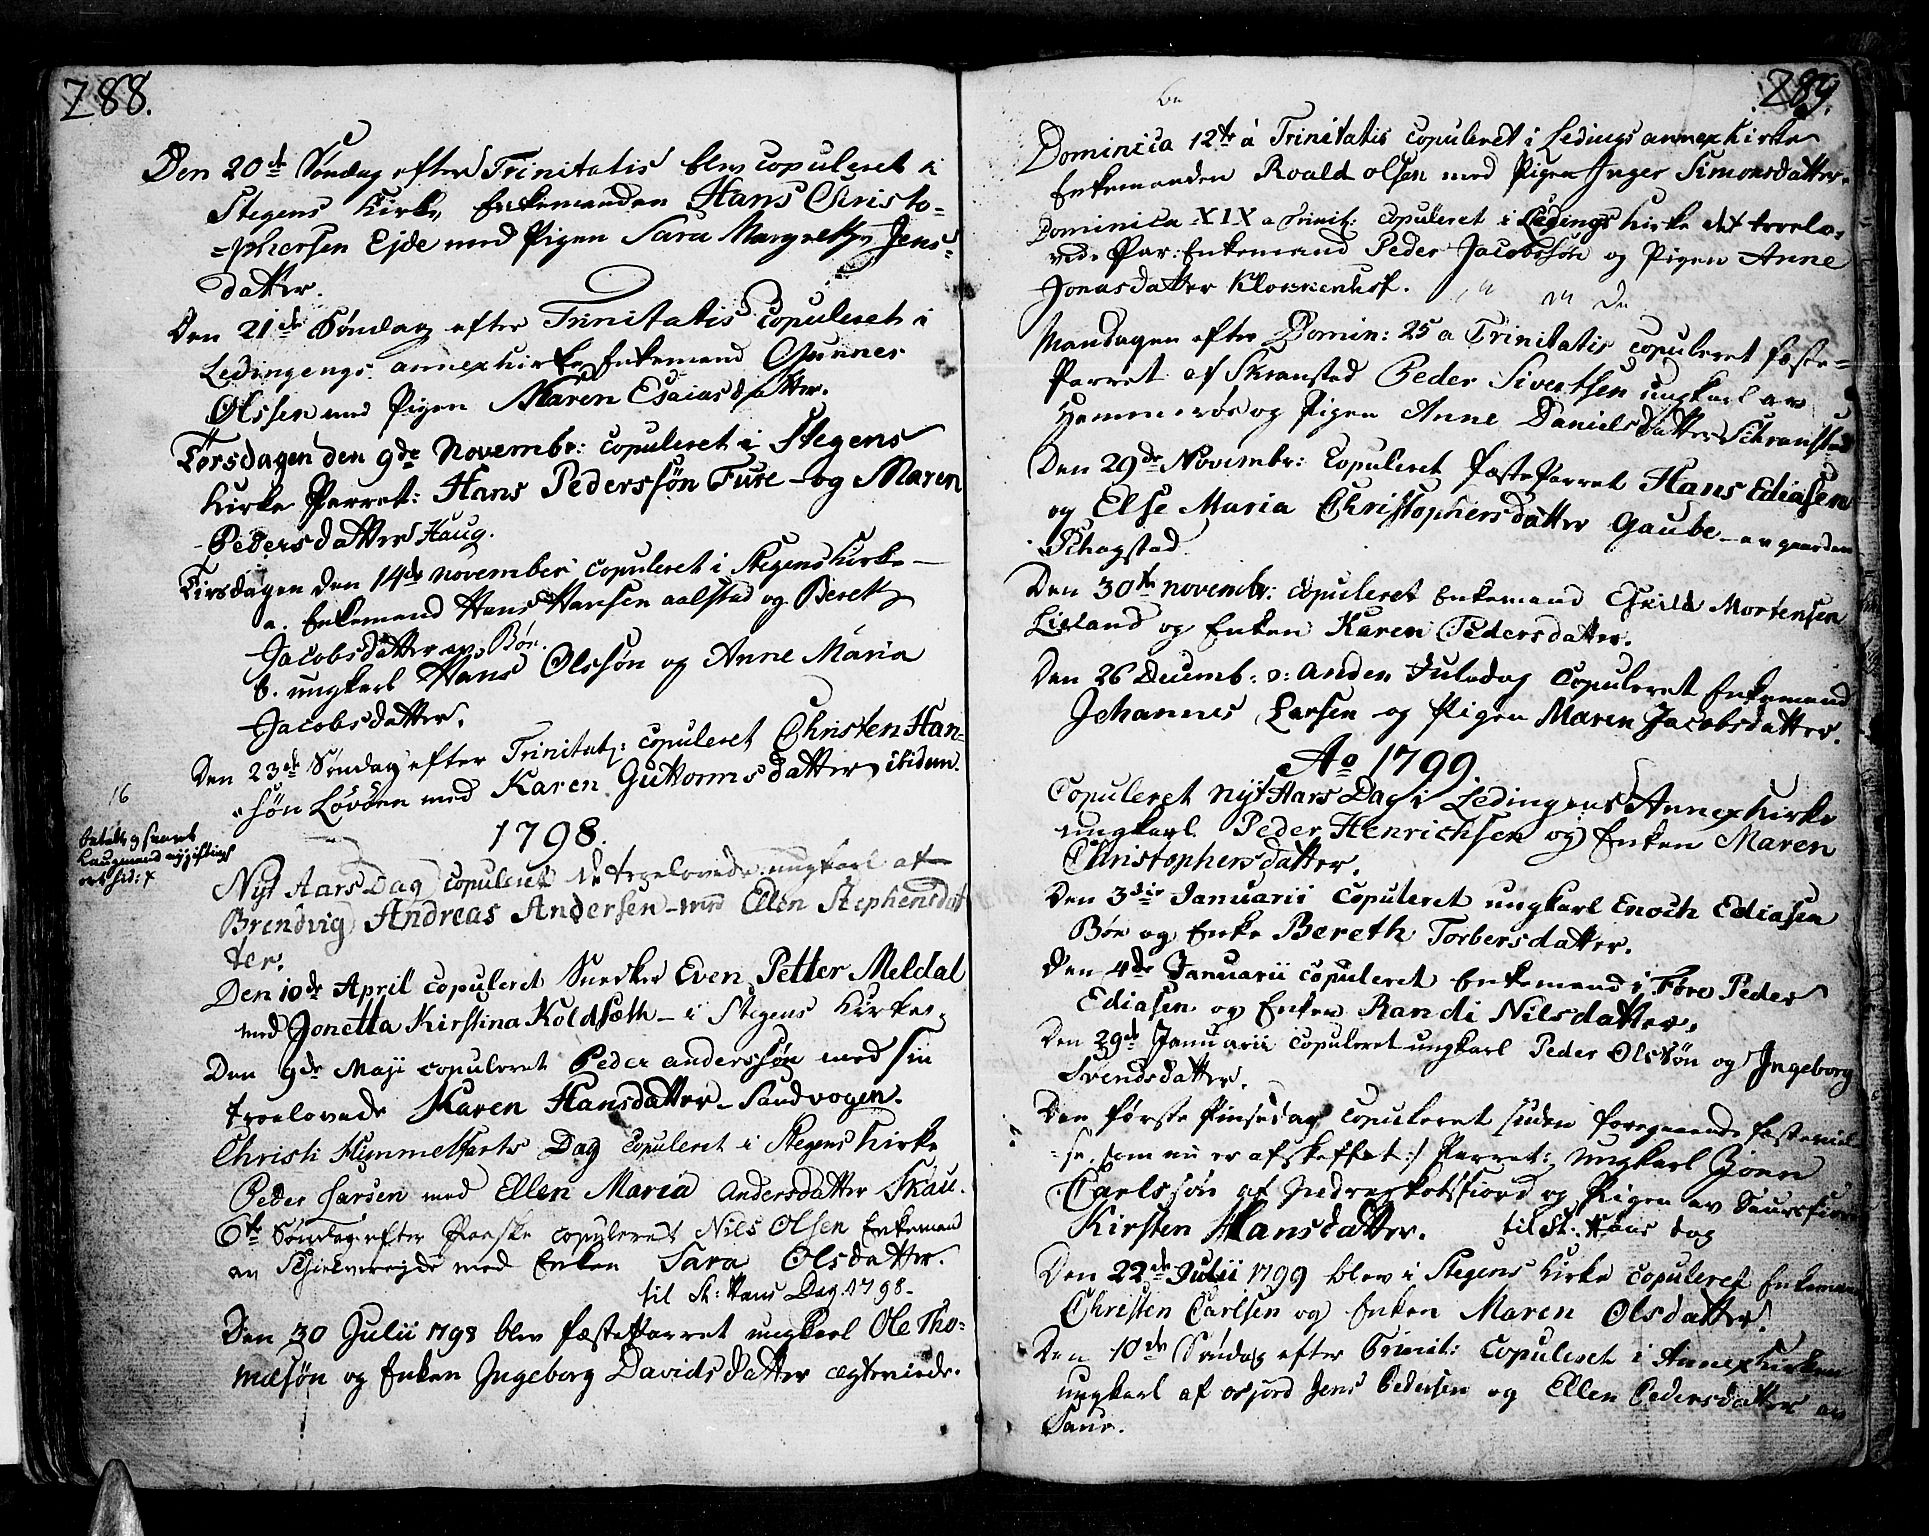 288.
Den 20de Søndag efter Trinitatis blev copuleret i
Stegens Kirke Enkemanden Hans Christo-
=phersen Ejde med Pigen Sara Margrethe Jens-
datter.
Den 21de Søndag efter Trinitatis Copuleret i
Ledingengs annexkirke Enkemand Gunner
Olssen med Pigen Maren Esaiasdatter.
Torsdagen den 9de Novembr: copuleret i Stegens
Kirke Parret: Hans Pederssøn Fure og Maren
Pedersdatter Haug.
Tirsdagen den 14de november copuleret i Stegens Kirke
a. Enkemand Hans Hansen aalstad og Bereth
Jacobsdatter av Bøe.
b. ungkarl Hans Olssøn og Anne Maria
Jacobsdatter.
Den 23de Søndag efter Trinitat: copuleret Christen Han-
søn Løvøen med Karen Guttormsdatter ibidem.
16
1798.
Nyt Aars Dag copuleret de troelovede ungkarl af
Brendvig Andreas Andersen med Ellen Stephensdat
ter.
Den 10de April copuleret Snedker Even Petter Meldal
med Jonetta Kirstina Koldsæth i Stegens Kirke.
Den 9de Maji copuleret Peder anderssøn med sin
troelovede Karen Hansdatter Sandvogen.
Christi Himmelfarts Dag copuleret i Stegens Kirke
Peder Larsen med Ellen Maria Andersdatter Skau.
6te Søndag efter Paaske copuleret Nils Olsen Enkemand
av med Enken Sara Olsdatter.
til St: Hans Dag 1798.
Den 30 Julii 1798 blev fæsteParret ungkarl Ole Tho-
mæsøn og Enken Ingeborg Davidsdatter ægteviede.
289.
Dominica 12te à Trinitatis copuleret i Ledings annexkirke
Enkemanden Roald olsen med Pigen Inger Simonsdatter.
Dominica XIX a Trinit: copuleret i Ledings Kirke det troelo-
vede Par: Enkemand Peder Jacobssøn og Pigen Anne
Jonasdatter Klokkenhof.
Mandagen efter Domin: 25 a Trinitatis copuleret fæste-
Parret af Skranstad Peder Sivertsen ungkarl av
Hammerøe og Pigen Anne Danielsdatter Schranstad
Den 29de Novembr: Copuleret fæsteParret Hans Ediasen
og Else Maria Christophersdatter Gaube av gaarden
Schagstad
Den 30te novembr: copuleret Enkemand Eskild Mortensen
Lieland og Enken Karen Pedersdatter.
Den 26 Decemb: anden Juledag Copuleret Enkemand
Johannes Larsen og Pigen Maren Jacobsdatter.
Ao 1799.
Copuleret Nyt Aars Dag i Ledingens Annexkirke
ungkarl Peder Henrichsen og Enken Maren
Christophersdatter.
Den 3die Januarii copuleret ungkarl Enoch Ediasen
Bøe og Enke Bereth Torbersdatter.
Den 4de Januarii copuleret Enkemand i Føre Peder
Ediasen og Enken Randi Nilsdatter.
Den 29de Januarii copuleret ungkarl Peder Olssøn og Ingeborg
Svendsdatter.
Den første Pinsedag copuleret uden foregaaende fæsteviel
=se, som nu er afskeffet :/ Parret: Ungkarl Joen
Carlssøn af Indre og Pigen av
Kirsten Hansdatter. til St: Hans dag
Den 22de Julii 1799 blev i Stegens Kirke copuleret Enkeman
Christen Carlsen og Enken Maren Olsdatter.
Den 10de Søndag efter Trinit: Copuleret i Annexkirken
ungkarl af Jens Pedersen og Ellen Pedersdatter av
Saur.